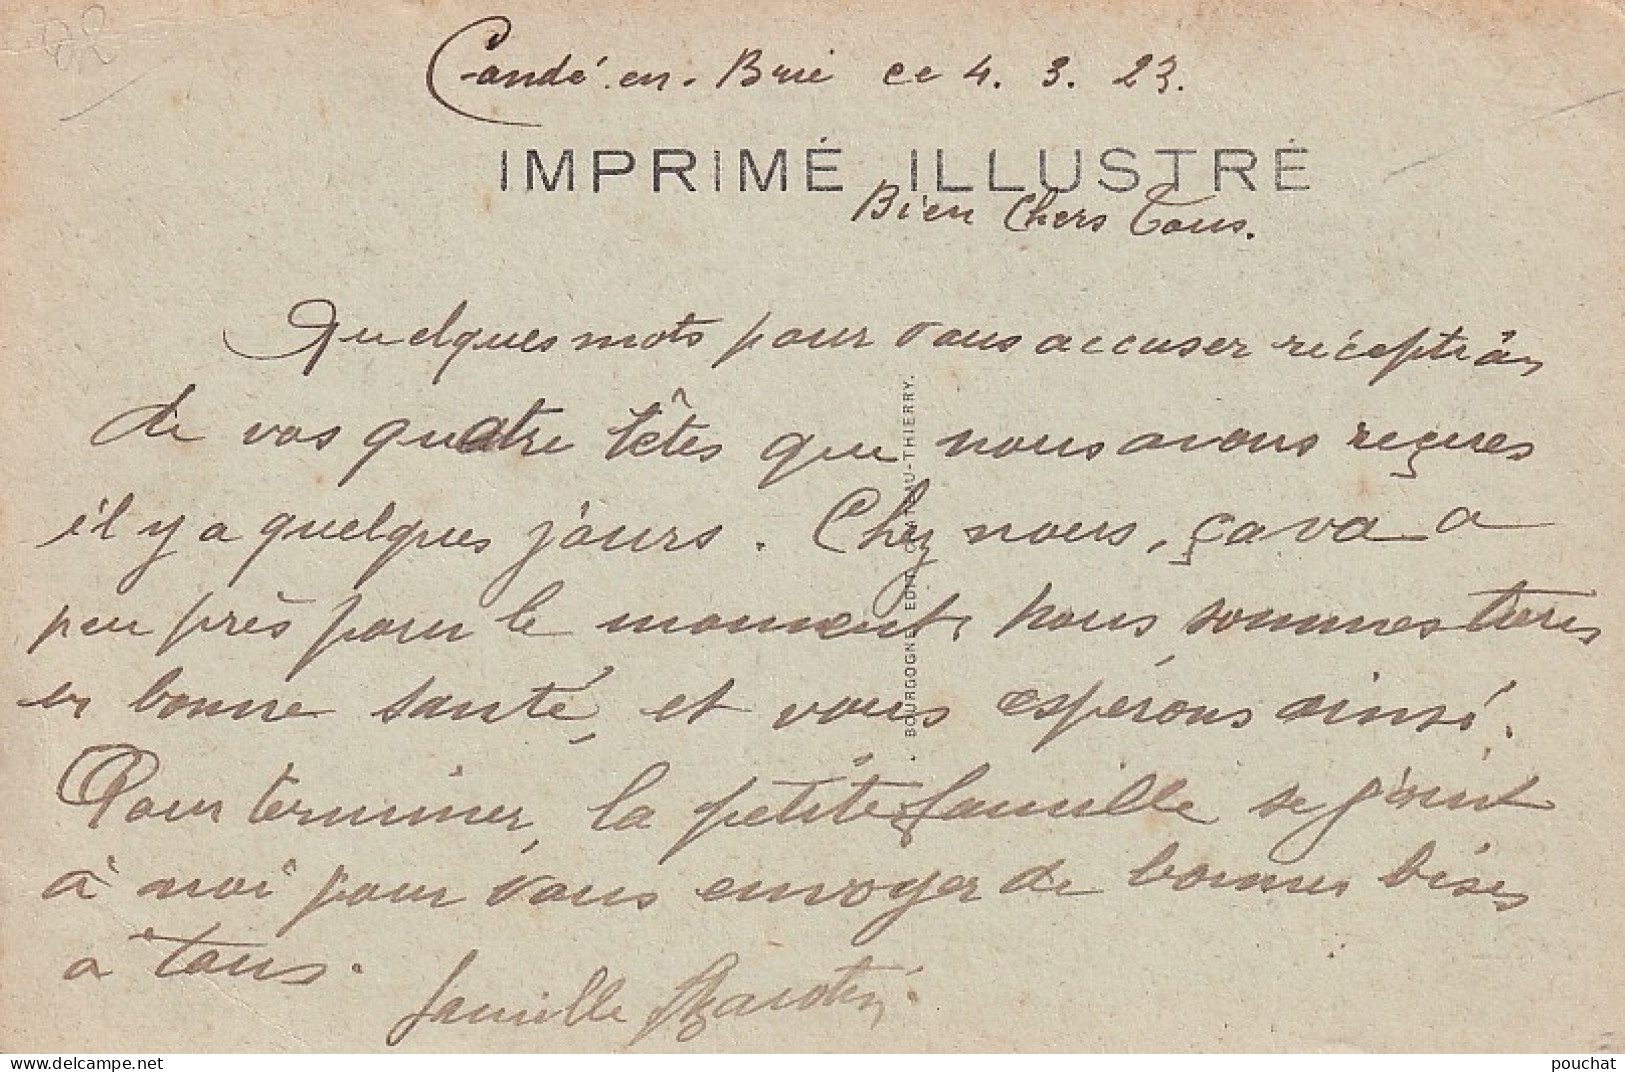 82
Condé-en-Brie ce 4. 3. 23.
IMPRIMÉ ILLUSTRÉ
Bien Chers Tous.
Quelques mots pour vous accuser réception
de vos quatre têtes que nous avons reçues
il y a quelques jours. Chez nous, ça va a
peu près pour le moment, nous sommes tous
en bonne santé, et vous espérons ainsi.
Pour terminer, la petite famille se joint
à moi pour vous envoyer de bonnes bises
à tous.
famille
. BOURGOGNE EDIT. CHATEAU-THIERRY.
www.delcampe.net
pouchat